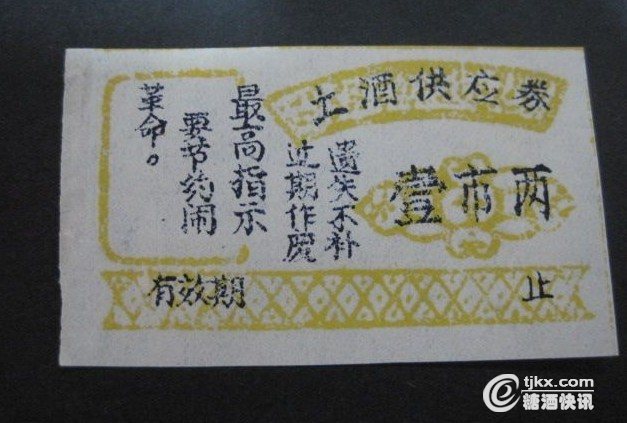 土酒供应券
壹市两
遗失不补
过期作废
最高指示
要节约闹
革命。
有效期
止
tjkx.com
糖酒快讯